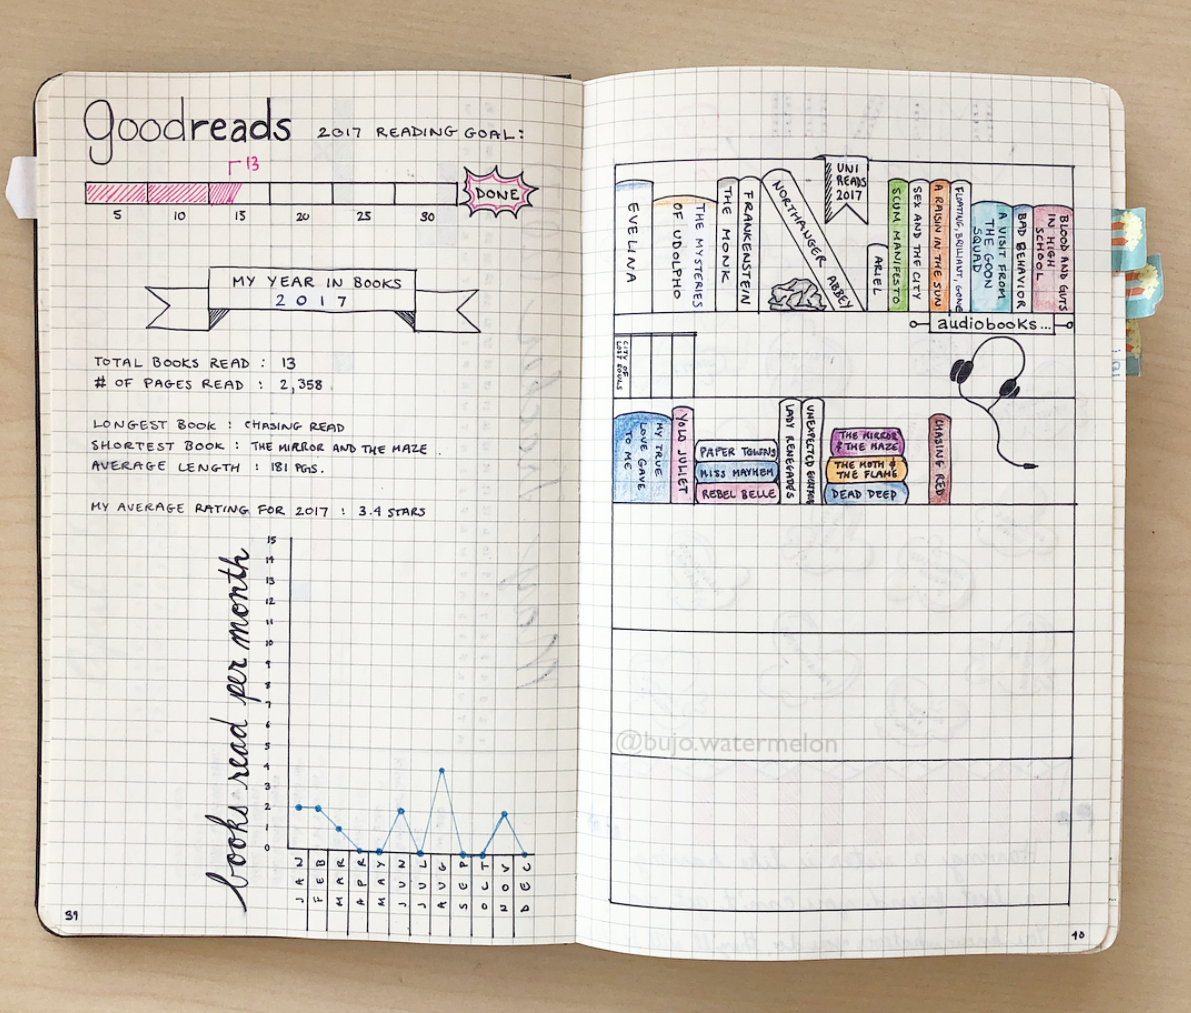 goodreads 2017 READING GOAL:
13
DONE
5 10 15 20 25 30
MY YEAR IN BOOKS
2017
TOTAL BOOKS READ : 13
# OF PAGES READ : 2,358
LONGEST BOOK : CHASING READ
SHORTEST BOOK : THE MIRROR AND THE MAZE
AVERAGE LENGTH : 181 PGS.
MY AVERAGE RATING FOR 2017 : 3.4 STARS
books read per month
15
14
13
12
11
10
9
8
7
6
5
4
3
2
1
0
JAN
FEB
MAR
APR
MAY
JUN
JUL
AUG
SEP
OCT
NOV
DEC
39
EVELINA
THE MYSTERIES
OF UDOLPHO
THE MONK
FRANKENSTEIN
NORTHANGER ABBEY
UNI
READS
2017
ARIEL
SCUM MANIFESTO
SEX AND THE CITY
A RAISIN IN THE SUN
FLOATING, BRILLIANT, GONE
A VISIT FROM
THE GOON
SQUAD
BAD BEHAVIOR
BLOOD AND GUTS
IN HIGH
SCHOOL
audiobooks...
CITY OF
LOST SOULS
MY TRUE
LOVE GAVE
TO ME
YOLO JULIET
PAPER TOWNS
MISS MAYHEM
REBEL BELLE
LADY RENEGADES
UNEXPECTED
THE MIRROR
& THE MAZE
THE MOTH &
THE FLAME
DEAD DEEP
CHASING RED
@bujo.watermelon
40